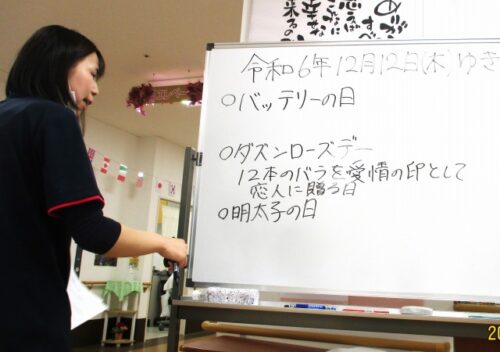 令和6年12月12日(木)ゆき
○バッテリーの日
○ダズンローズデー
12本のバラを愛情の印として
恋人に贈る日
○明太子の日